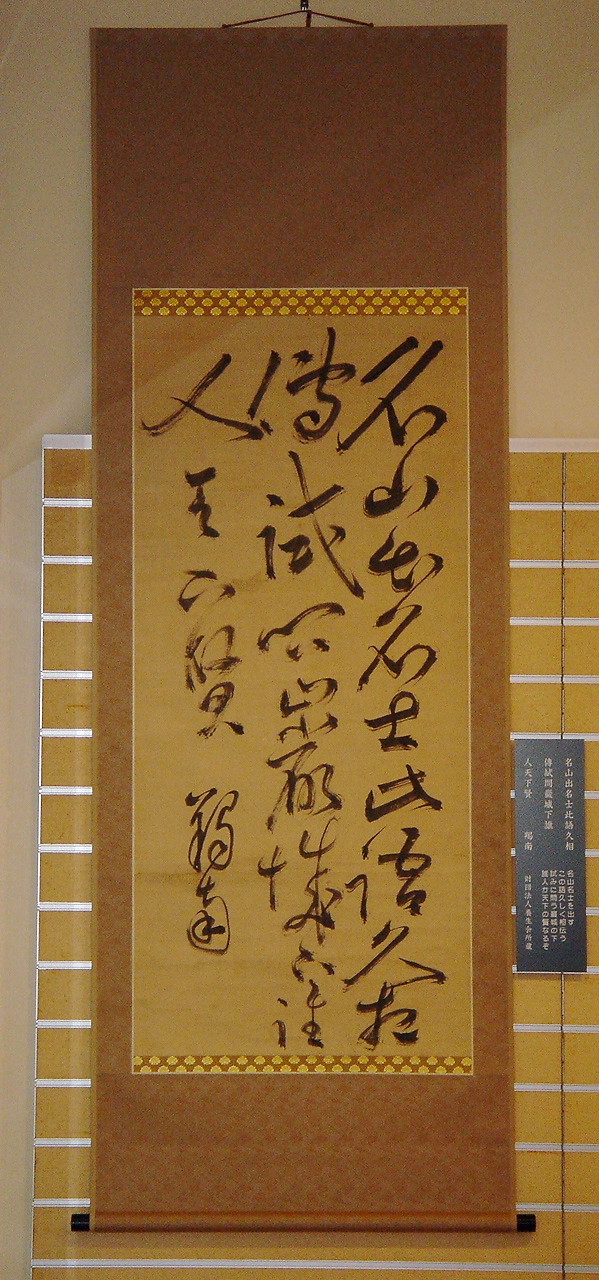 名山出名士此語久相
傳試問巖城下誰
人天下賢 羯南
名山出名士此語久相
傳試問巖城下誰
人天下賢 羯南
名山名士を出す
この語久しく相伝う
試みに問う巖城の下
誰人か天下の賢なるぞ
財団法人養生会所蔵